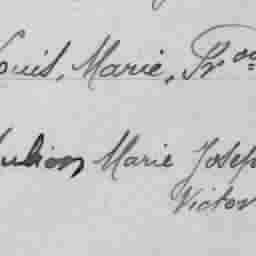 ouis, Marie, Pr
Marie Josep
Victor